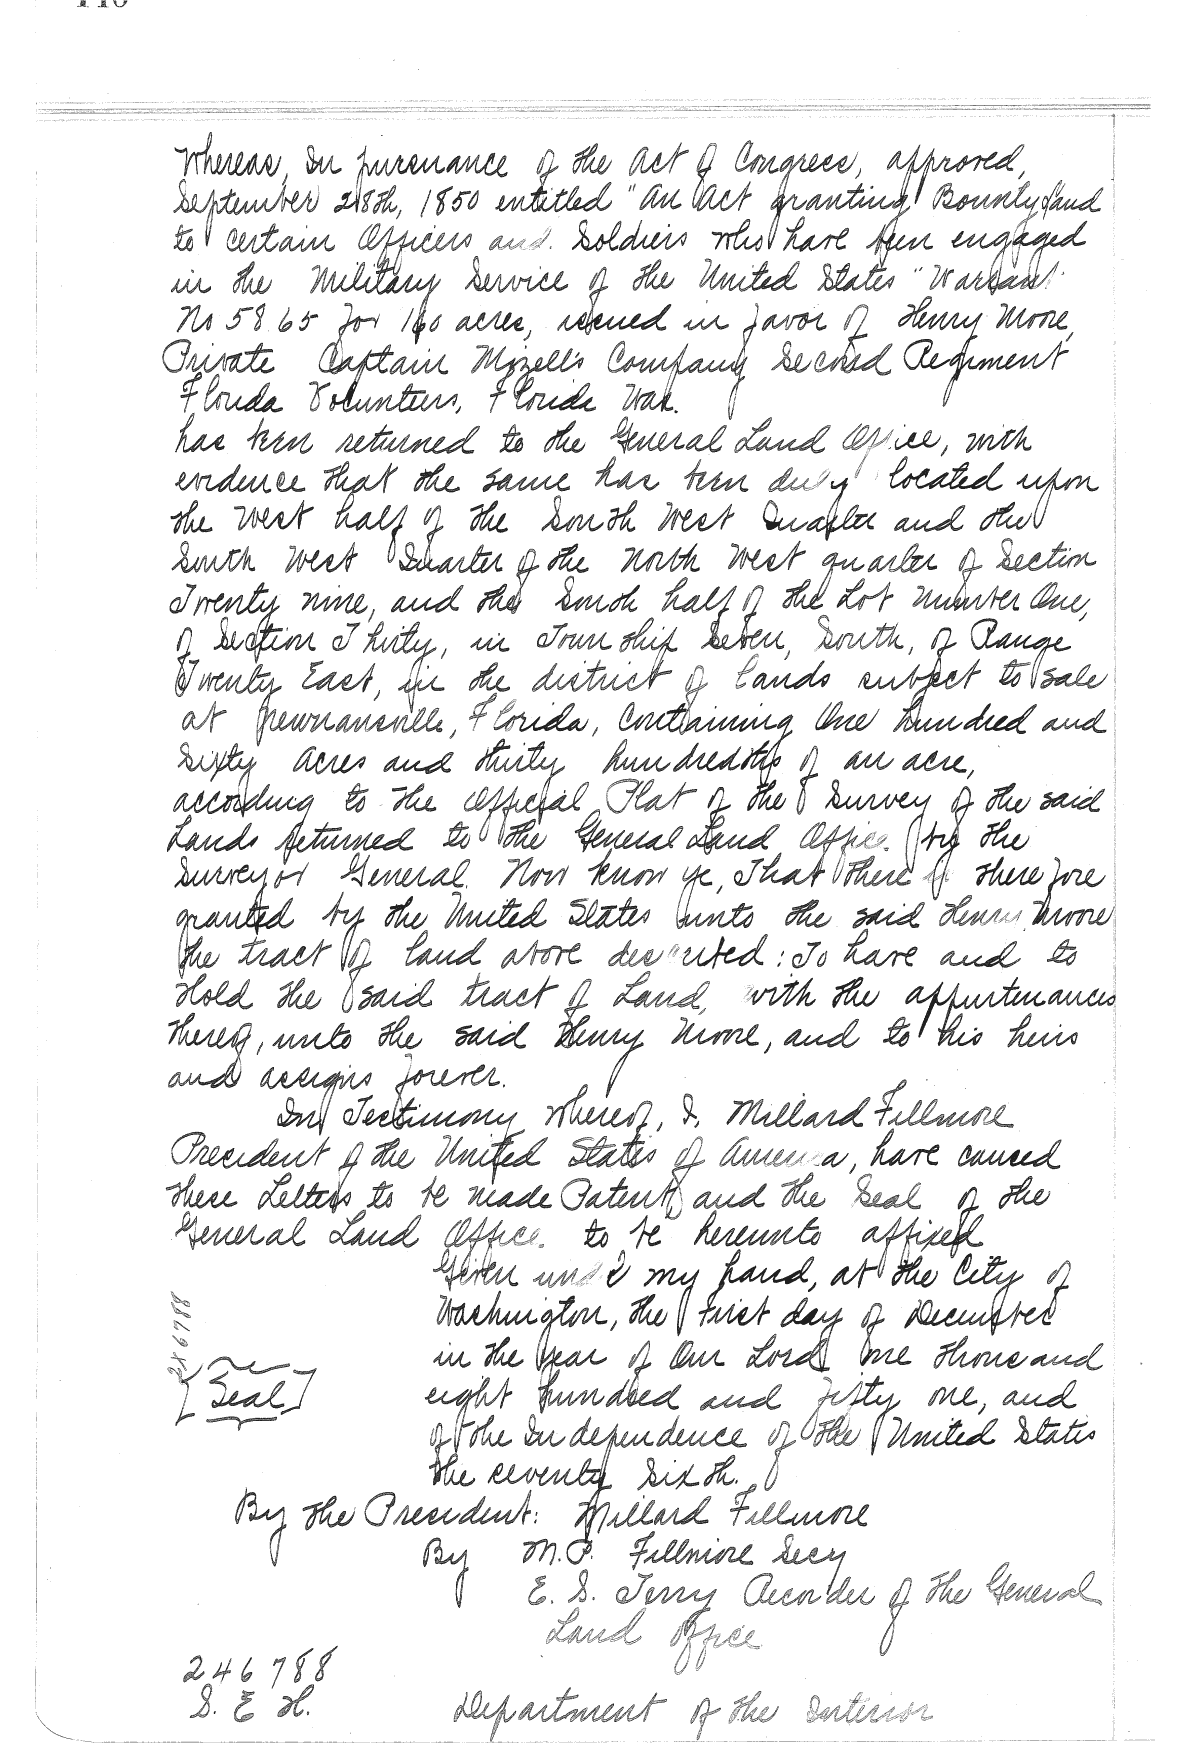 Whereas, In pursuance of the Act of Congress, approved,
September 28th, 1850 entitled "An Act granting Bounty Land
to certain Officers and Soldiers who have been engaged
in the Military Service of the United States" Warrant
No 5865 for 160 acres, issued in favor of Henry Moore,
Private Captain Mizell's Company Second Regiment
Florida Volunteers, Florida War.
has been returned to the General Land Office, with
evidence that the same has been duly located upon
the West half of the South West Quarter and the
South West Quarter of the North West quarter of Section
Twenty nine, and the South half of the Lot Number One,
of Section Thirty, in Township Seven, South, of Range
Twenty East, in the district of lands subject to sale
at Newnansville, Florida, Containing One hundred and
Sixty Acres and thirty hundredths of an acre,
according to the Official Plat of the Survey of the said
Lands returned to the General Land Office by the
Surveyor General. Now know ye, That there is therefore
granted by the United States unto the said Henry Moore
the tract of land above described: To have and to
Hold the said tract of Land, with the appurtenances
thereof, unto the said Henry Moore, and to his heirs
and assigns forever.
In Testimony whereof, I, Millard Fillmore
President of the United States of America, have caused
these Letters to be made Patent, and the Seal of the
General Land Office to be hereunto affixed
Given under my hand, at the City of
Washington, the first day of December
in the year of Our Lord one thousand
eight hundred and fifty one, and
of the Independence of the United States
the seventy sixth.
Seal
By the President: Millard Fillmore
By M. P. Fillmore Secy
E. S. Terry Recorder of the General
Land Office
246788
S. E H.
Department of the Interior